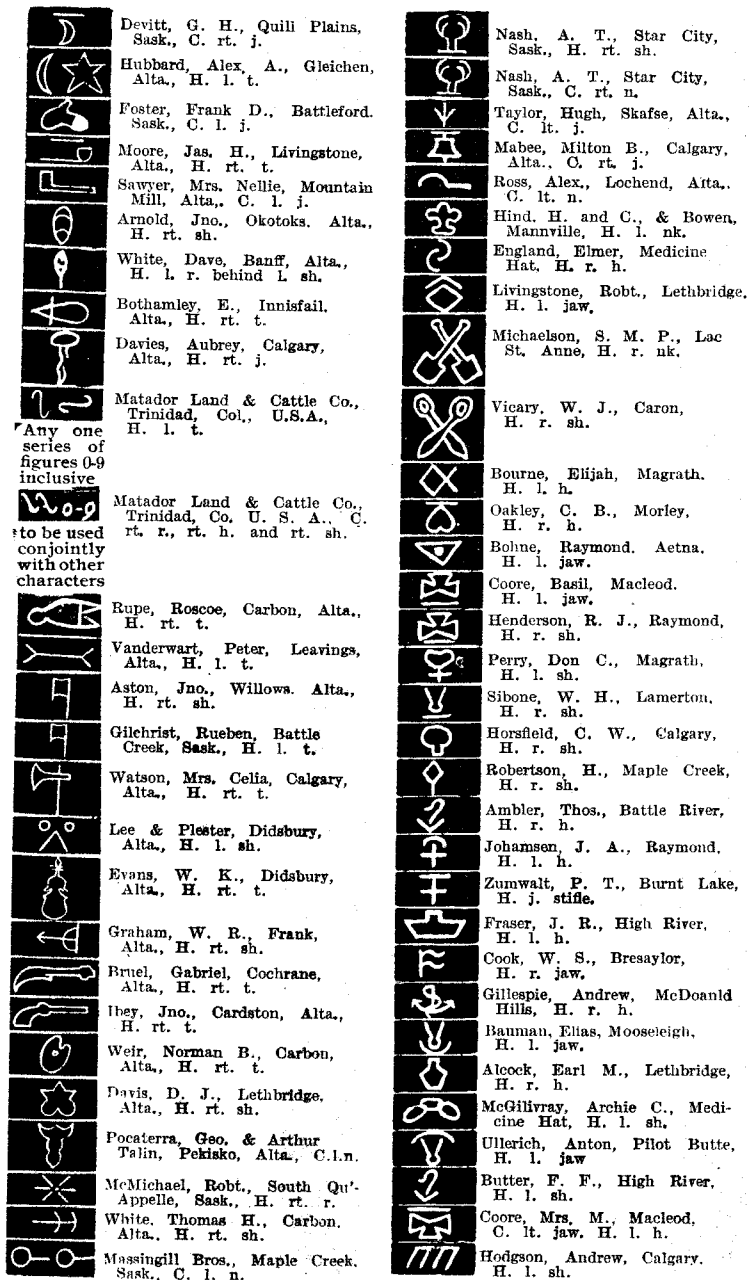 Devitt, G. H., Quill Plains,
Sask., C. rt. j.
Hubbard, Alex, A., Gleichen,
Alta., H. l. t.
Foster, Frank D., Battleford.
Sask., C. l. j.
Moore, Jas. H., Livingstone,
Alta., H. rt. t.
Sawyer, Mrs. Nellie, Mountain
Mill, Alta,. C. l. j.
Arnold, Jno., Okotoks. Alta.,
H. rt. sh.
White, Dave, Banff, Alta.,
H. l. r. behind L sh.
Bothamley, E., Innisfail.
Alta., H. rt. t.
Davies, Aubrey, Calgary,
Alta., H. rt. j.
Matador Land & Cattle Co.,
Trinidad, Col,, U.S.A.,
H. l. t.
Any one
series of
figures 0-9
inclusive
0-9
Matador Land & Cattle Co.,
Trinidad, Co. U. S. A., C.
rt. r., rt. h. and rt. sh.
to be used
conjointly
with other
characters
Rupe, Roscoe, Carbon, Alta.,
H. rt. t.
Vanderwart, Peter, Leavings,
Alta., H. l. t.
Aston, Jno., Willows. Alta.,
H. rt. sh.
Gilchrist, Rueben, Battle
Creek, Sask., H. l. t.
Watson, Mrs. Celia, Calgary,
Alta., H. rt. t.
Lee & Plester, Didsbury,
Alta., H. l. sh.
Evans, W. K., Didsbury,
Alta., H. rt. t.
Graham, W. R., Frank,
Alta., H. rt. sh.
Bruel, Gabriel, Cochrane,
Alta., H. rt. t.
Ibey, Jno., Cardston, Alta.,
H. rt. t.
Weir, Norman B., Carbon,
Alta., H. rt. t.
Davis, D. J., Lethbridge.
Alta., H. rt. sh.
Pocaterra, Geo. & Arthur
Talin, Pekisko, Alta., C.l.n.
McMichael, Robt., South Qu'-
Appelle, Sask., H. rt. r.
White, Thomas H., Carbon.
Alta., H. rt. sh.
Massingill Bros., Maple Creek.
Sask., C. l. n.
Nash, A. T., Star City,
Sask., H. rt. sh.
Nash, A. T., Star City,
Sask., C. rt. n.
Taylor, Hugh, Skafse, Alta.,
C. lt. j.
Mabee, Milton B., Calgary,
Alta., C. rt. j.
Ross, Alex., Lochend, Alta..
C. lt. n.
Hind, H. and C., & Bowen,
Mannville, H. l. nk.
England, Elmer, Medicine
Hat, H. r. h.
Livingstone, Robt., Lethbridge.
H. l. jaw.
Michaelson, S. M. P., Lac
St. Anne, H. r. nk.
Vicary, W. J., Caron,
H. r. sh.
Bourne, Elijah, Magrath.
H. l. h.
Oakley, C. B., Morley,
H. r. h.
Bohne, Raymond. Aetna.
H. l. jaw.
Coore, Basil, Macleod.
H. l. jaw.
Henderson, R. J., Raymond,
H. r. sh.
Perry, Don C., Magrath,
H. l. sh.
Sibone, W. H., Lamerton.
H. r. sh.
Horsfield, C. W., Calgary,
H. r. sh.
Robertson, H., Maple Creek,
H. r. sh.
Ambler, Thos., Battle River,
H. r. h.
Johamsen, J. A., Raymond,
H. l. h.
Zumwalt, P. T., Burnt Lake,
H. j. stifle.
Fraser, J. R., High River,
H. l. h.
Cook, W. S., Bresaylor,
H. r. jaw.
Gillespie, Andrew, McDoanld
Hills, H. r. h.
Bauman, Elias, Mooseleigh,
H. l. jaw.
Alcock, Earl M., Lethbridge,
H. r. h.
McGilivray, Archie C., Medi-
cine Hat, H. l. sh.
Ullerich, Anton, Pilot Butte,
H. l. jaw
Butter, F. F., High River,
H. l. sh.
Coore, Mrs. M., Macleod,
C. lt. jaw. H. l. h.
Hodgson, Andrew, Calgary.
H. l. sh.